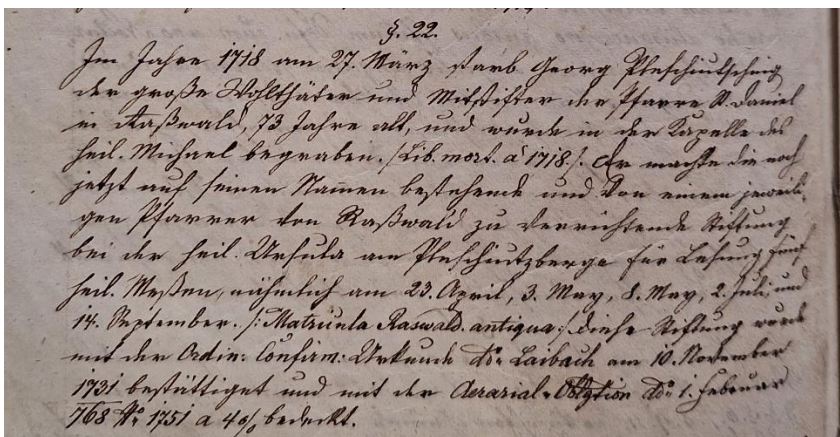 §. 22.
Im Jahre 1718 am 27. März starb Georg Pleschiutschnig
der große Wohlthäter und Mitstifter der Pfarre St. Daniel
in Raßwald, 73 Jahre alt, und wurde in der Kapelle des
heil. Michael begraben. /Lib. mort. a 1718./ Er machte die noch
jetzt auf seinen Namen bestehende und von einem jeweili-
gen Pfarrer von Raßwald zu verrichtende Stiftung
bei der heil. Ursula am Pleschiutzberge für Lesung fünf
heil. Meßen, nähmlich am 23. April, 3. May, 8. May, 2. Juli, und
14. September. /: Matricula Raswald. antiqua :/ Diese Stiftung wurde
mit der Ordin: Confirm: Urkunde ddo Laibach am 10. November
1731 bestättiget und mit der Aerarial-Obligation ddo 1. Februar
768 No 1751 a 4% bedeckt.